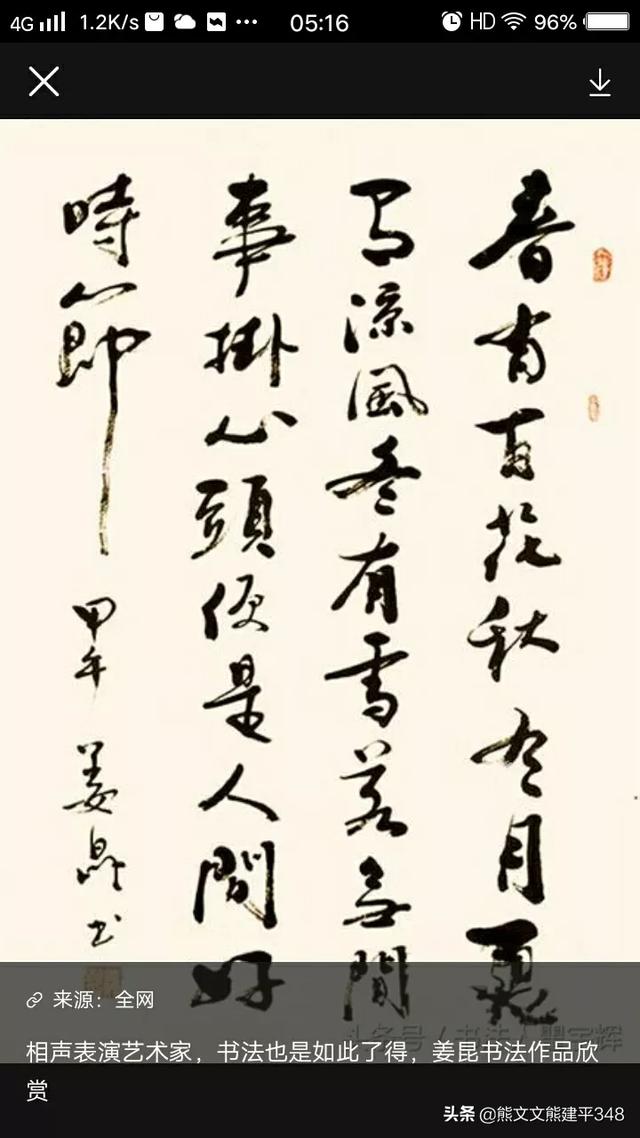 4G 1.2K/s ... 05:16 HD 96%
春有百花秋有月夏
有涼風冬有雪若無閒
事掛心頭便是人間好
時節
甲午
姜昆书
来源：全网
相声表演艺术家，书法也是如此了得，姜昆书法作品欣
赏
头条 @熊文文熊建平348